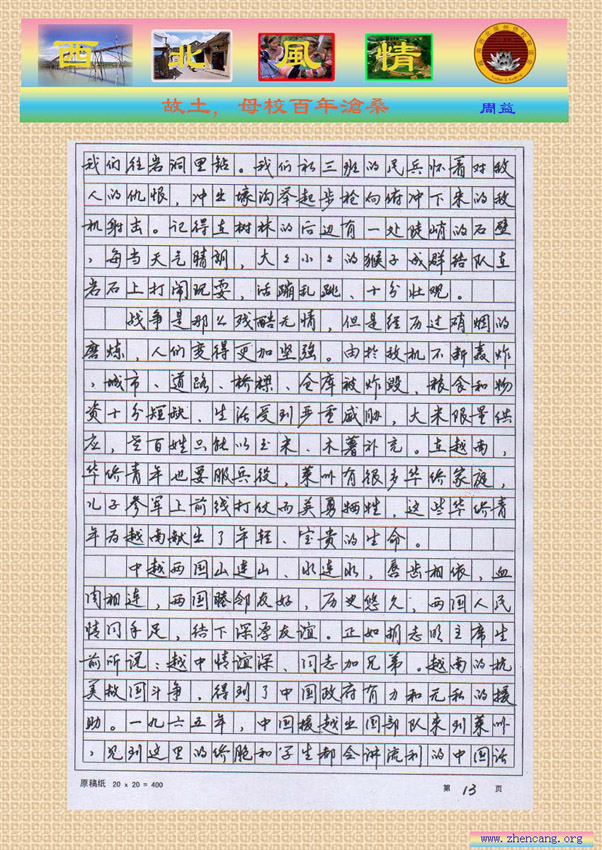 西北風情
故土，母校百年滄桑
周益
我们往岩洞里钻。我们初三班的民兵怀着对敌
人的仇恨，冲出壕沟举起步枪向俯冲下来的敌
机射击。记得在树林的后边有一处陡峭的石壁
，每当天气晴朗，大大小小的猴子成群结队在
岩石上打闹玩耍，活蹦乱跳、十分壮观。
战争是那么残酷无情，但是经历过硝烟的
磨炼，人们变得更加坚强。由於敌机不断轰炸
，城市、道路、桥樑、仓库被炸毁，粮食和物
资十分短缺、生活受到严重威胁，大米限量供
应，老百姓只能以玉米、木薯补充。在越南，
华侨青年也要服兵役，莱州有很多华侨家庭，
儿子参军上前线打仗而英勇牺牲，这些华侨青
年为越南献出了年轻、宝贵的生命。
中越两国山连山、水连水，唇齿相依，血
肉相连，两国睦邻友好，历史悠久，两国人民
情同手足，结下深厚友谊。正如胡志明主席生
前所说：越中情谊深、同志加兄弟。越南的抗
美救国斗争，得到了中国政府有力和无私的援
助。一九六五年，中国援越出国部队来到莱州
，见到这里的侨胞和学生都会讲流利的中国话
原稿纸 20 x 20 = 400
第 13 页
www.zhencang.org